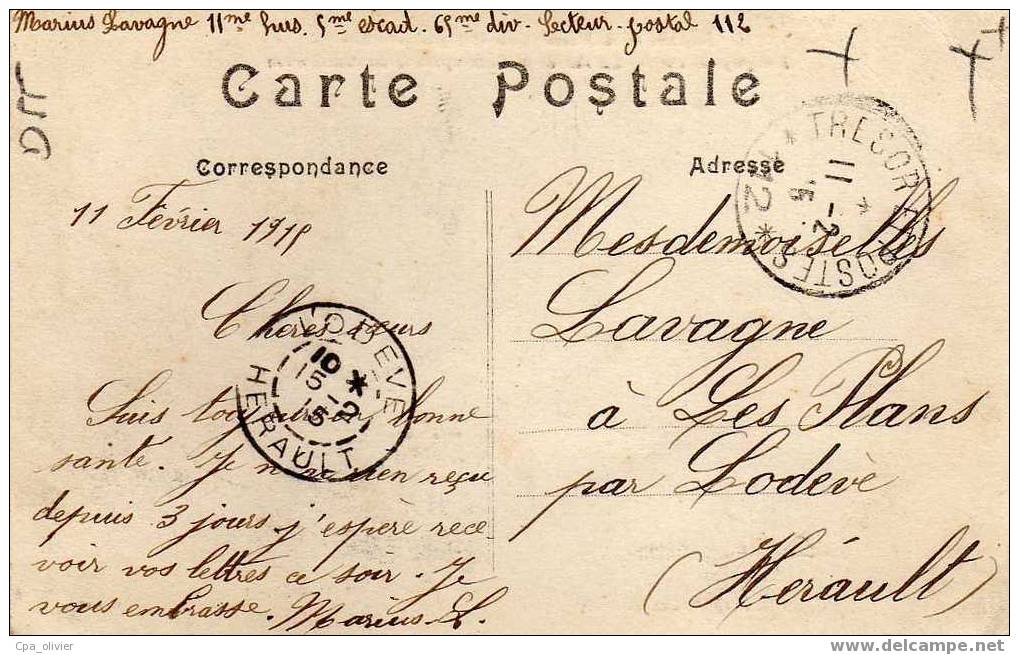 Marius Lavagne 11me hus. 5me escad. 65me div. Secteur postal 112
Carte Postale
Correspondance
Adresse
TRESOR ET POSTES
11 -2
15
112
11 Février 1915
Chères sœurs
Suis toujours en bonne
santé. Je n'ai rien reçu
depuis 3 jours j'espère rece
voir vos lettres ce soir. Je
vous embrasse. Marius. L.
LODEVE
10
15 -2
15
HERAULT
Mesdemoiselles
Lavagne
à Les Plans
par Lodève
(Hérault)
Cpa_olivier
www.delcampe.net